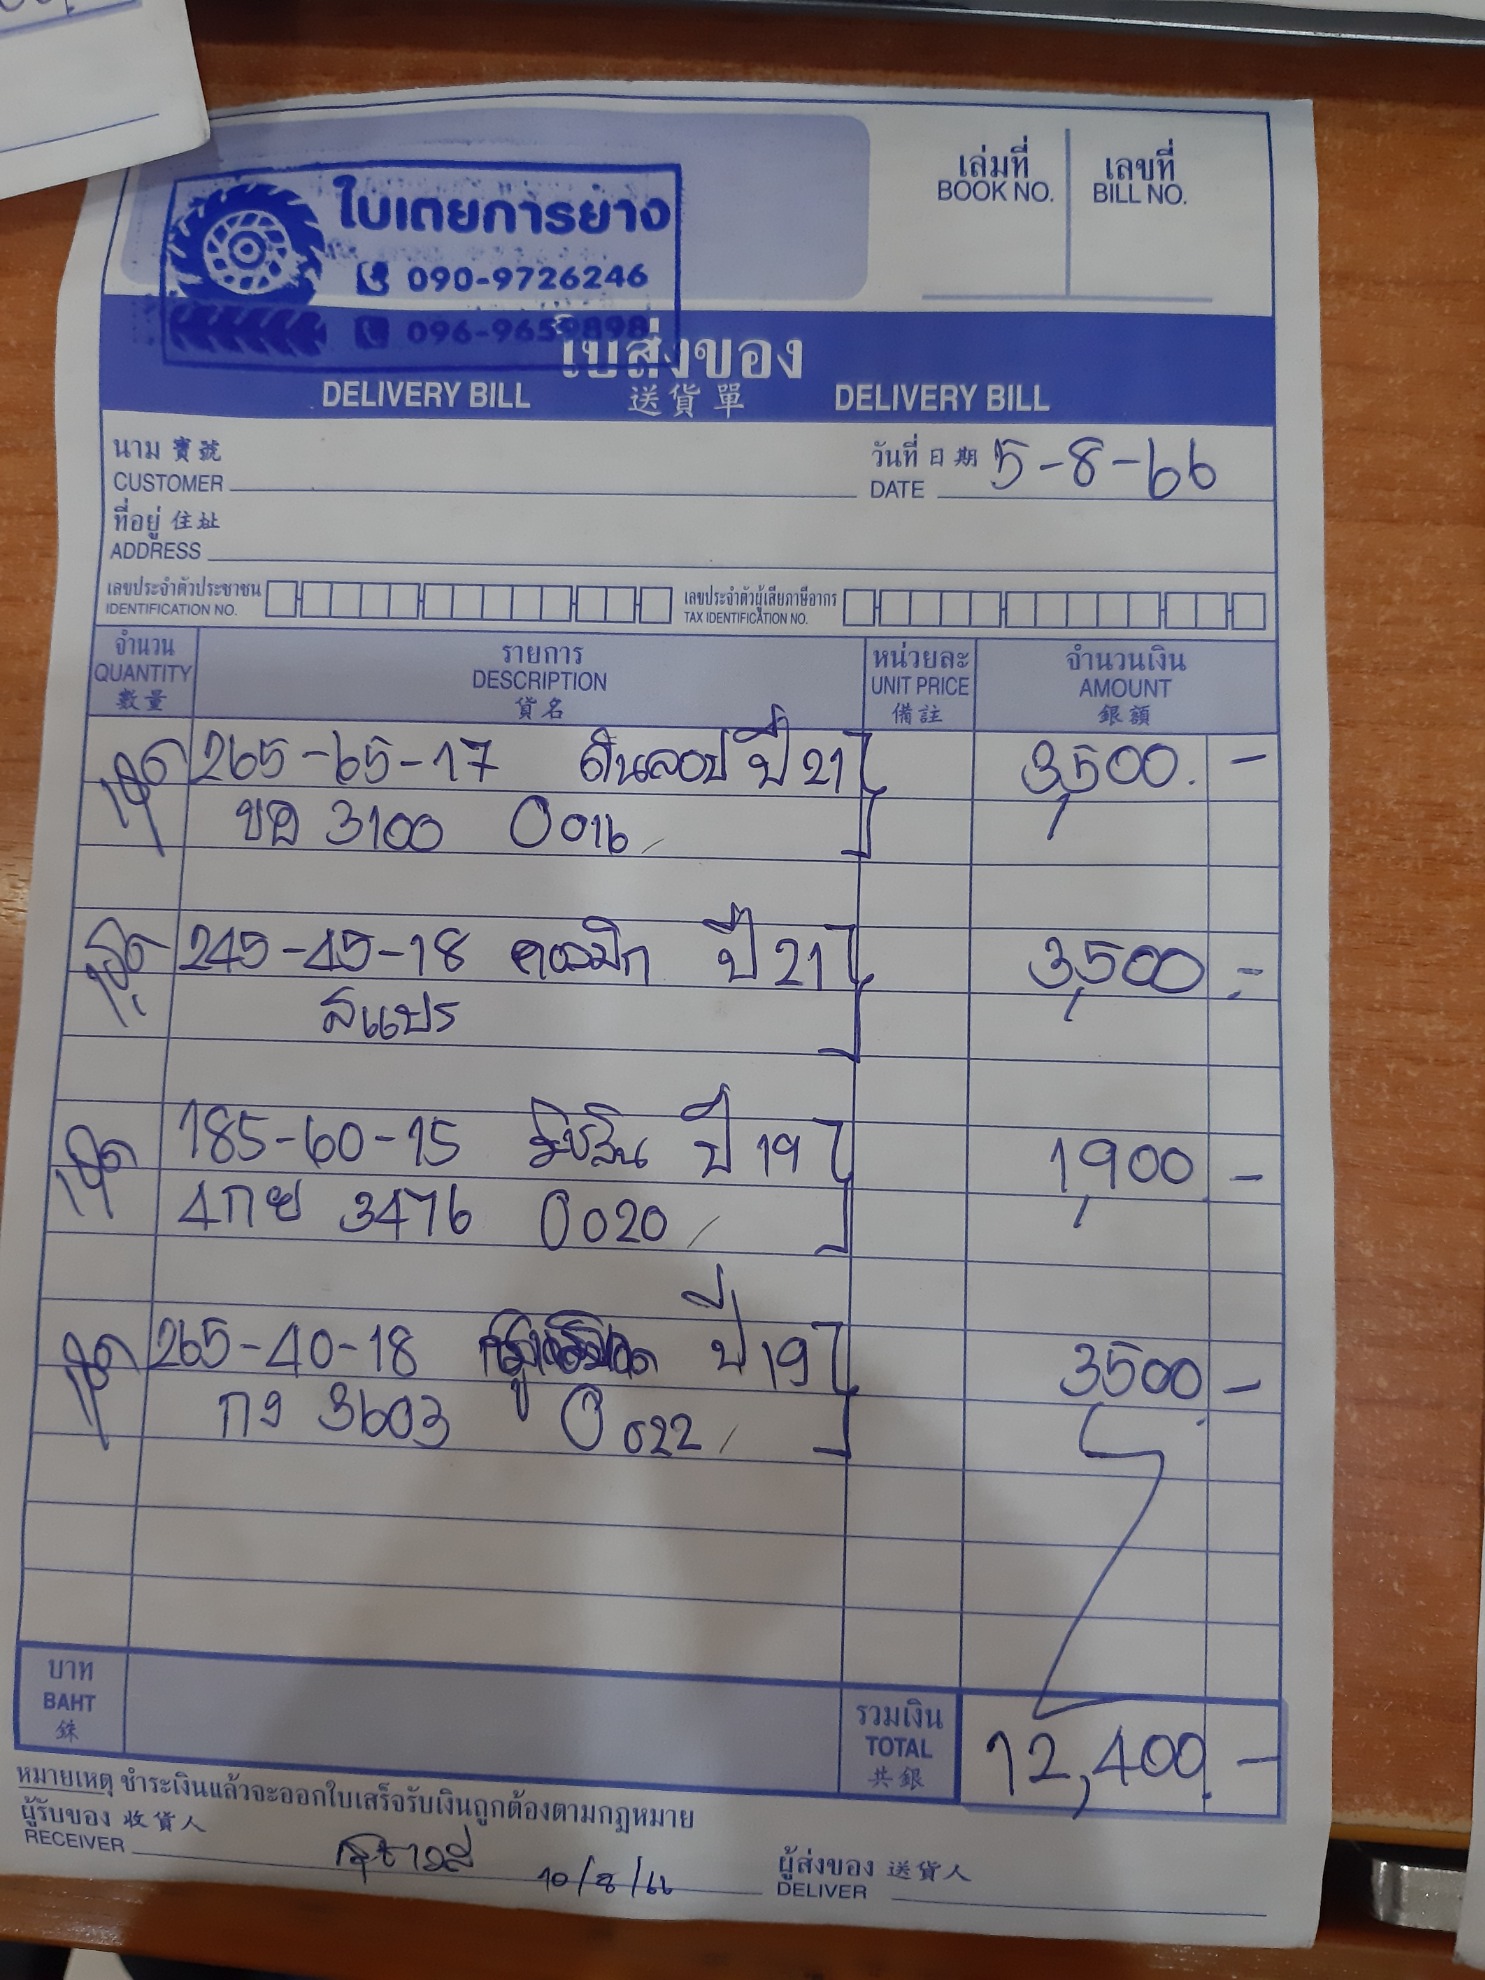 ใบเตยการยาง
090-9726246
096-9659898
เล่มที่
BOOK NO.
เลขที่
BILL NO.
ใบส่งของ
DELIVERY BILL 送貨單 DELIVERY BILL
นาม 寶號
CUSTOMER
วันที่ 日期 5-8-66
DATE
ที่อยู่ 住址
ADDRESS
เลขประจำตัวประชาชน
IDENTIFICATION NO.
เลขประจำตัวผู้เสียภาษีอากร
TAX IDENTIFICATION NO.
จำนวน
QUANTITY
數量
รายการ
DESCRIPTION
貨名
หน่วยละ
UNIT PRICE
備註
จำนวนเงิน
AMOUNT
銀額
1ชุด 265-65-17 ดันลอป ปี 21 3,500.-
ขอ 3100 0016
1ชุด 245-45-18 ปี 21 3,500.-
สแปร
1ชุด 185-60-15 ปี 19 1,900.-
4กย 3476 0020
1ชุด 265-40-18 ปี 19 3500.-
กง 3603 0022
บาท
BAHT
銖
รวมเงิน
TOTAL
共銀
12,400.-
หมายเหตุ ชำระเงินแล้วจะออกใบเสร็จรับเงินถูกต้องตามกฎหมาย
ผู้รับของ 收貨人
RECEIVER 10/8/66
ผู้ส่งของ 送貨人
DELIVER